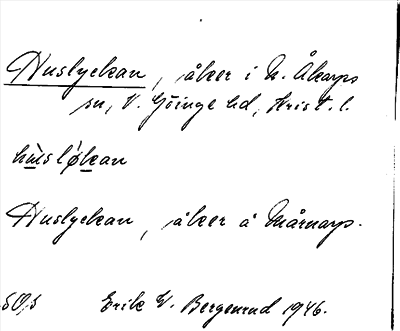 Huslyckan, åker i N. Åkarps
sn, V. Göinge hd, Krist. l.
hùsløkan
Huslyckan, åker å Mårnarp.
SO,s Erik W. Bergenrud 1946.